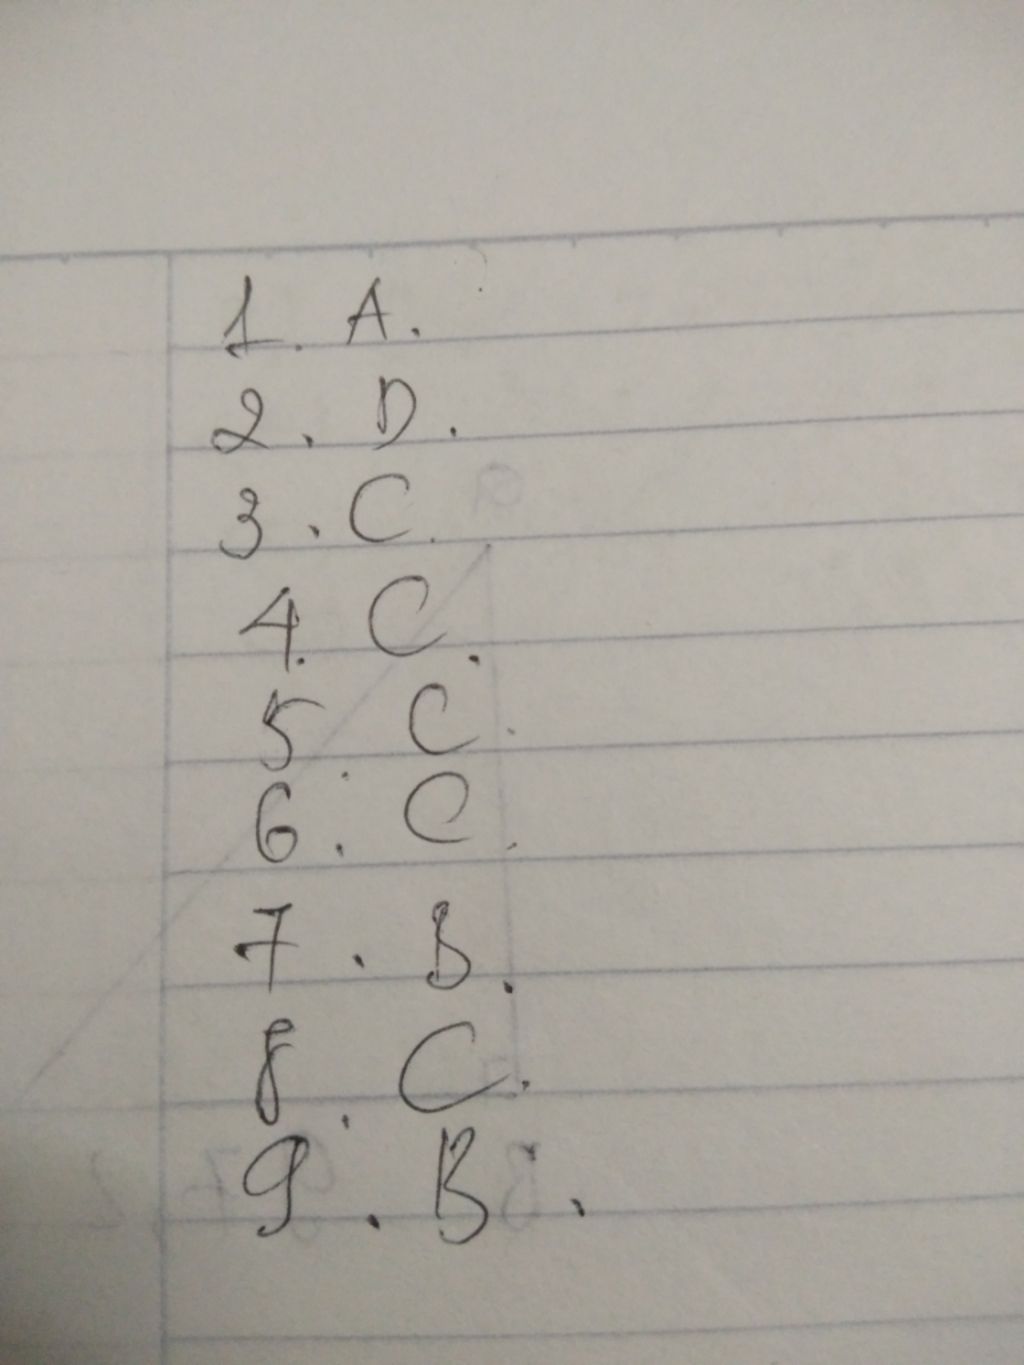 1. A.
2. D.
3. C.
4. C.
5. C.
6. C.
7. B.
8. C.
9. B.